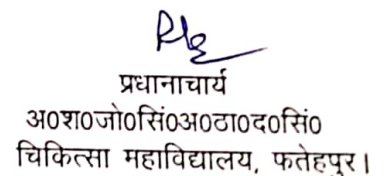 प्रधानाचार्य
अ०श०जो०सिं०अ०ठा०द०सिं०
चिकित्सा महाविद्यालय, फतेहपुर।